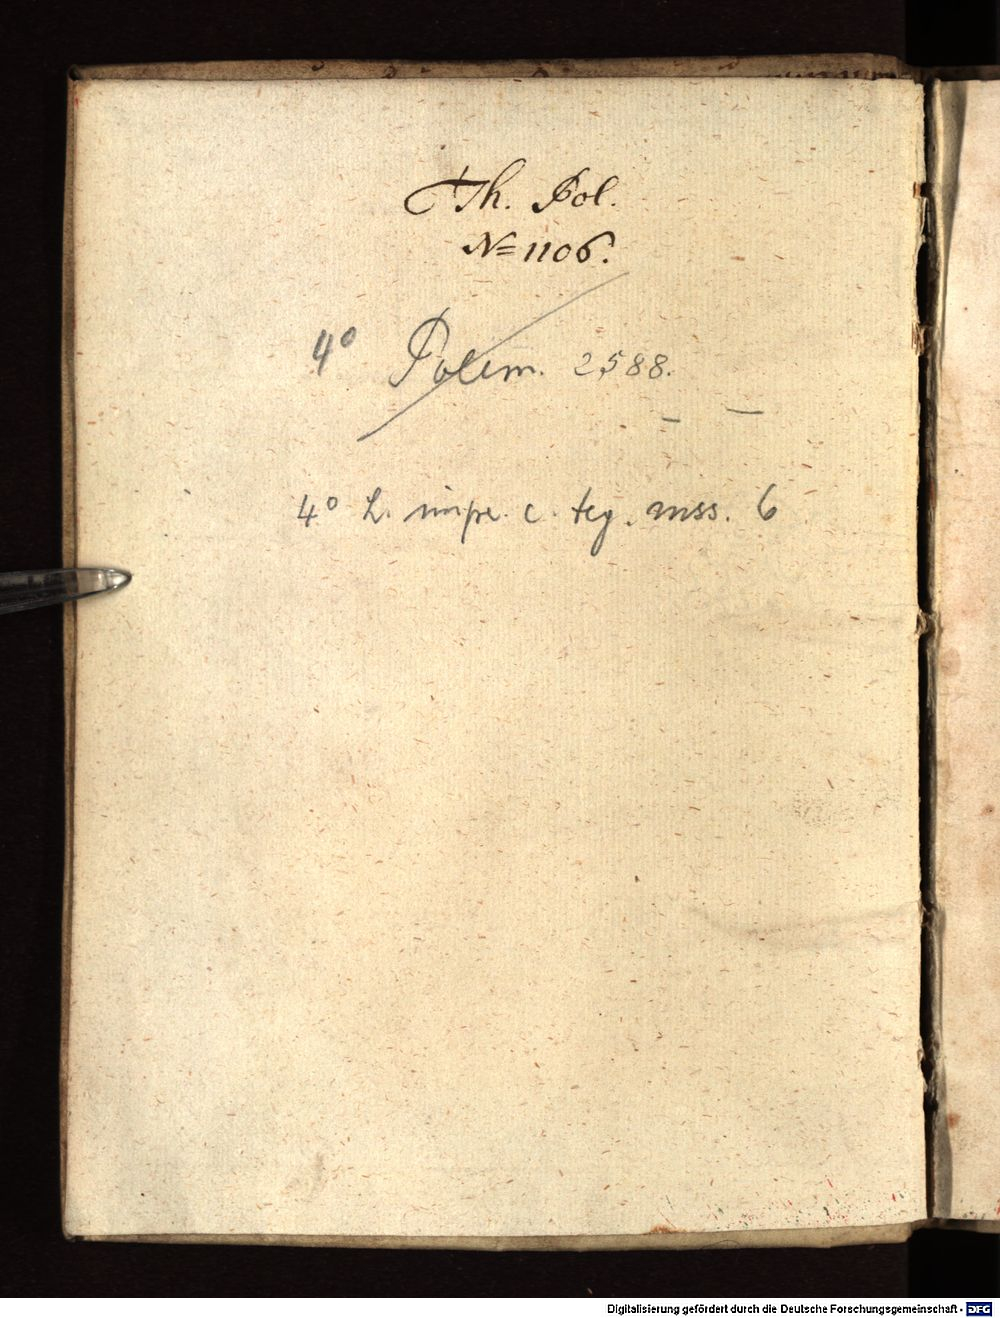 Th. Pol.
N= 1106.
4° Polem. 2588.
4° L. impr. c. teg. mss. 6
Digitalisierung gefördert durch die Deutsche Forschungsgemeinschaft - DFG